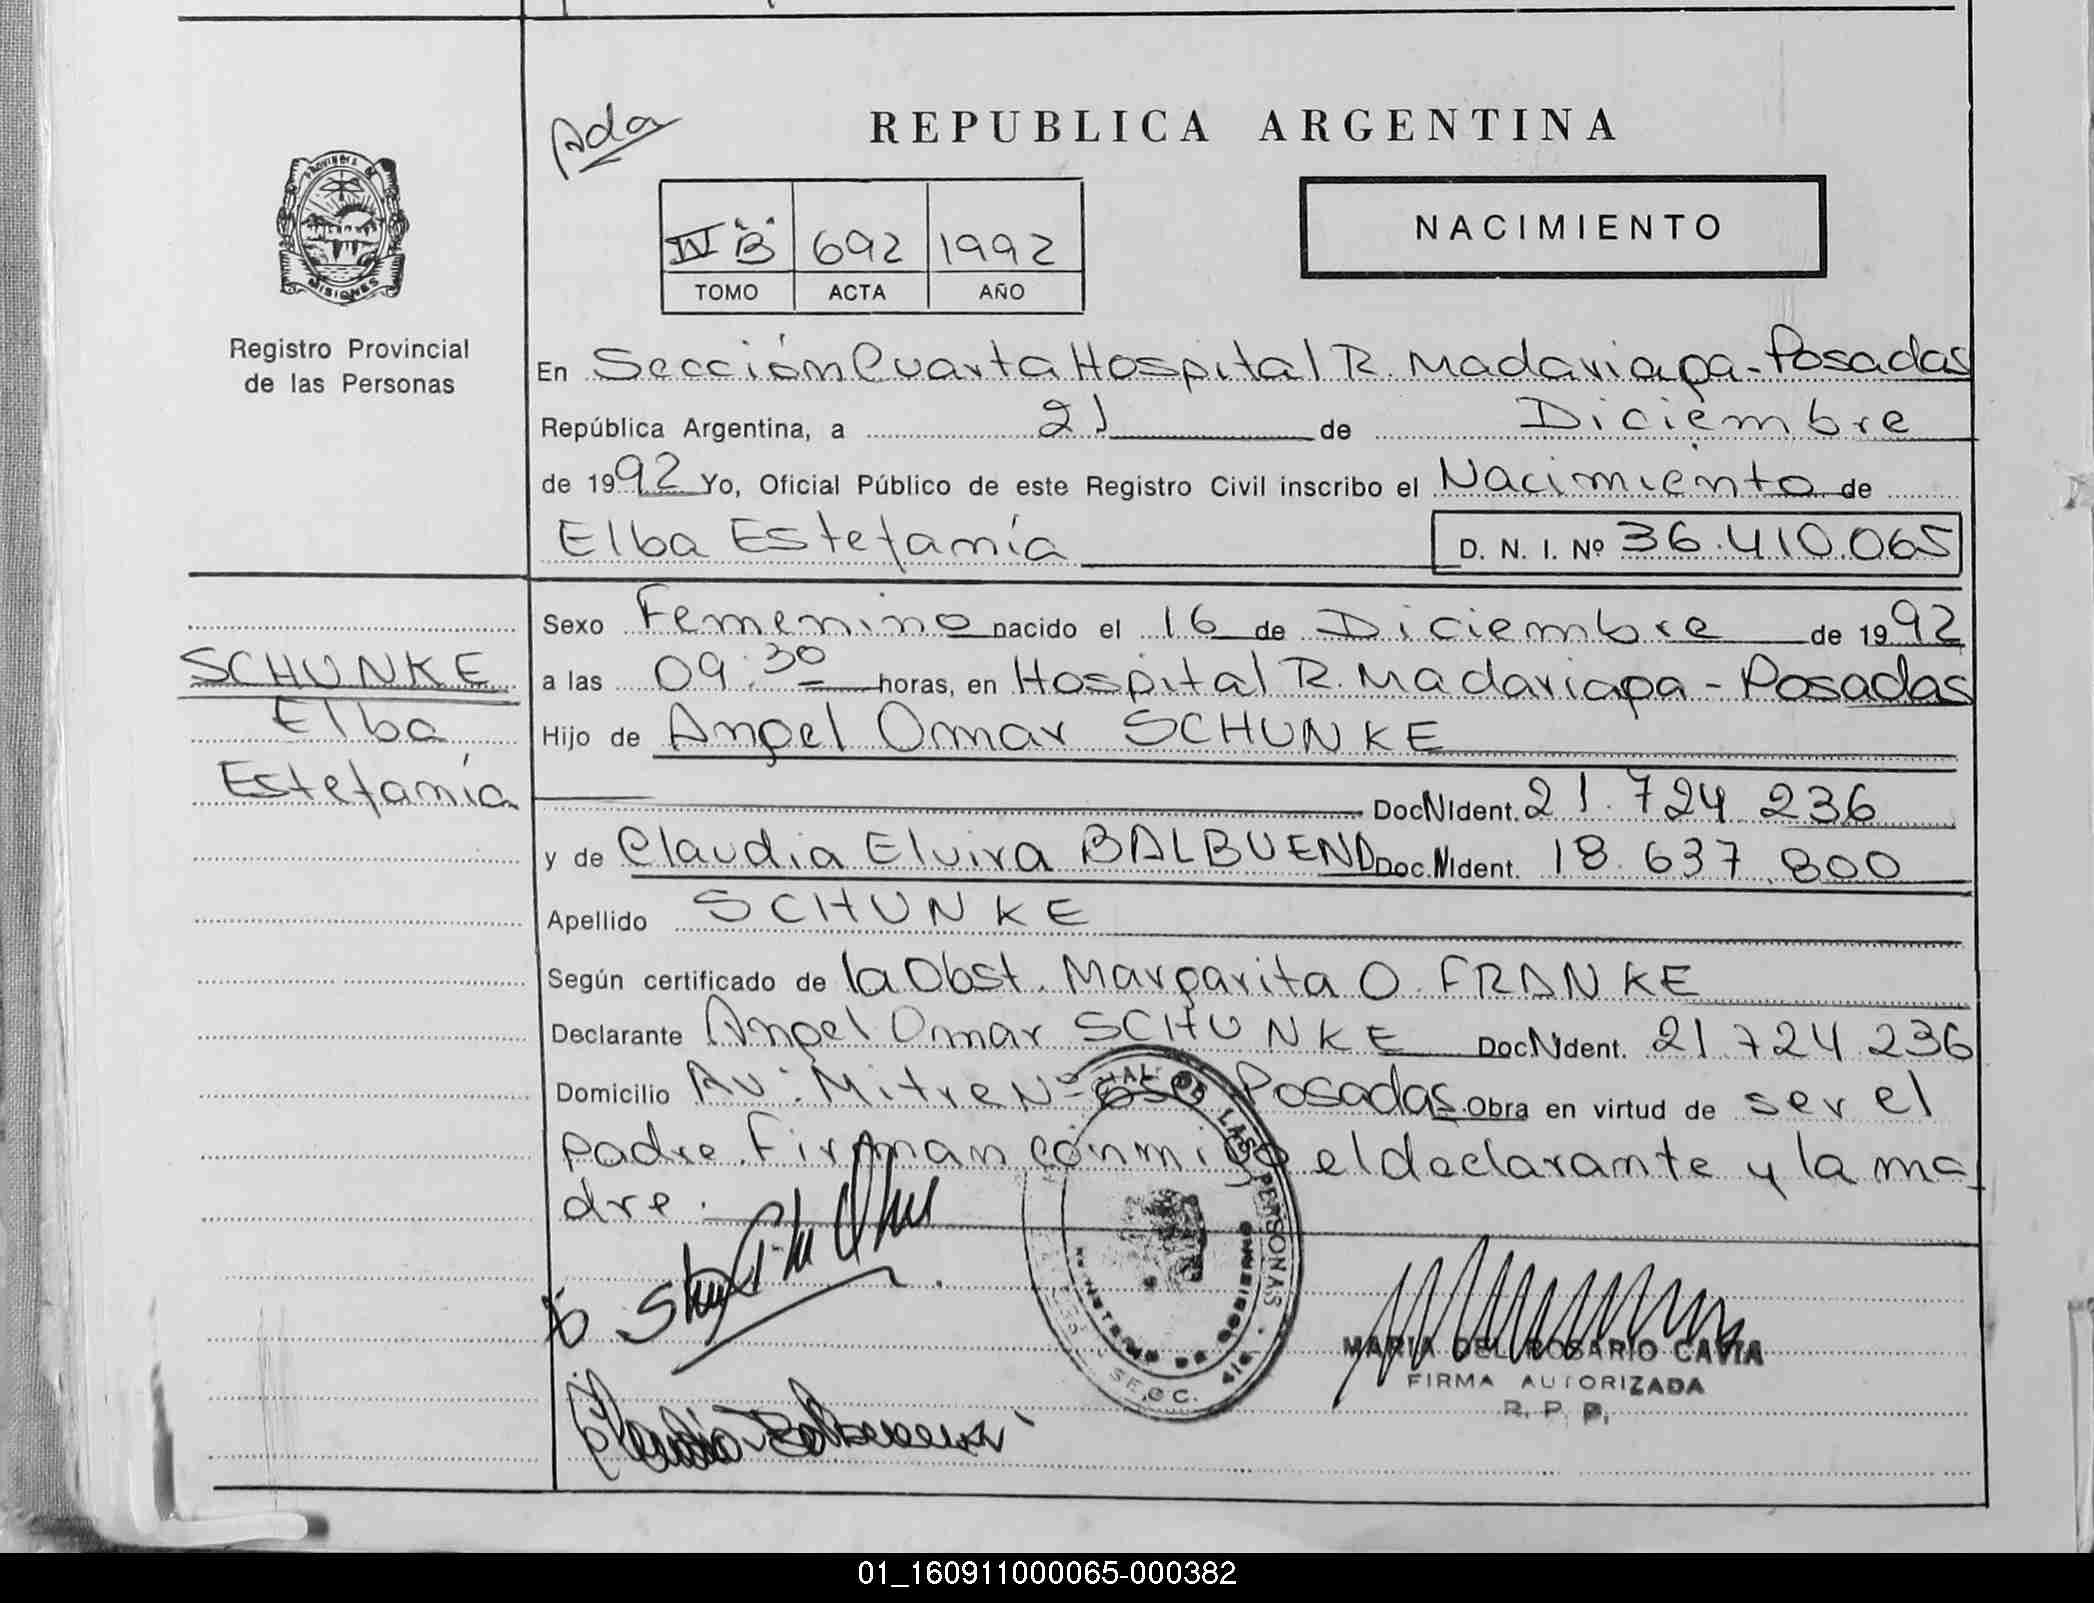 Ada
REPUBLICA ARGENTINA
PROVINCIA DE
MISIONES
IV "B" 692 1992
TOMO ACTA AÑO
NACIMIENTO
Registro Provincial
de las Personas
En Sección Cuarta Hospital R. Madariaga - Posadas
República Argentina, a 21 de Diciembre
de 1992 Yo, Oficial Público de este Registro Civil inscribo el Nacimiento de
Elba Estefanía D. N. I. Nº 36.410.065
SCHUNKE
Elba
Estefanía
Sexo Femenino nacido el 16 de Diciembre de 1992
a las 09:30 horas, en Hospital R. Madariaga - Posadas
Hijo de Angel Omar SCHUNKE
Doc N Ident. 21.724.236
y de Claudia Elvira BALBUENA Doc. N Ident. 18.637.800
Apellido SCHUNKE
Según certificado de la Obst. Margarita O. FRANKE
Declarante Angel Omar SCHUNKE Doc N dent. 21.724.236
Domicilio Av: Mitre Nº Posadas. Obra en virtud de ser el
padre. Firman conmigo el declarante y la ma
dre.
DE LAS PERSONAS
MINISTERIO DE GOBIERNO
SECC. 4ta
Claudia Balbuena
MARIA DEL ROSARIO CAVIA
FIRMA AUTORIZADA
R. P. P.
01_160911000065-000382